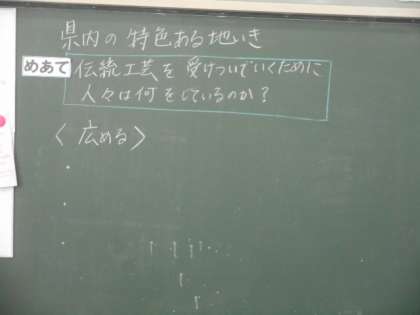 県内の特色ある地いき
めあて 伝統工芸を受けついでいくために
人々は何をしているのか?
〈広める〉